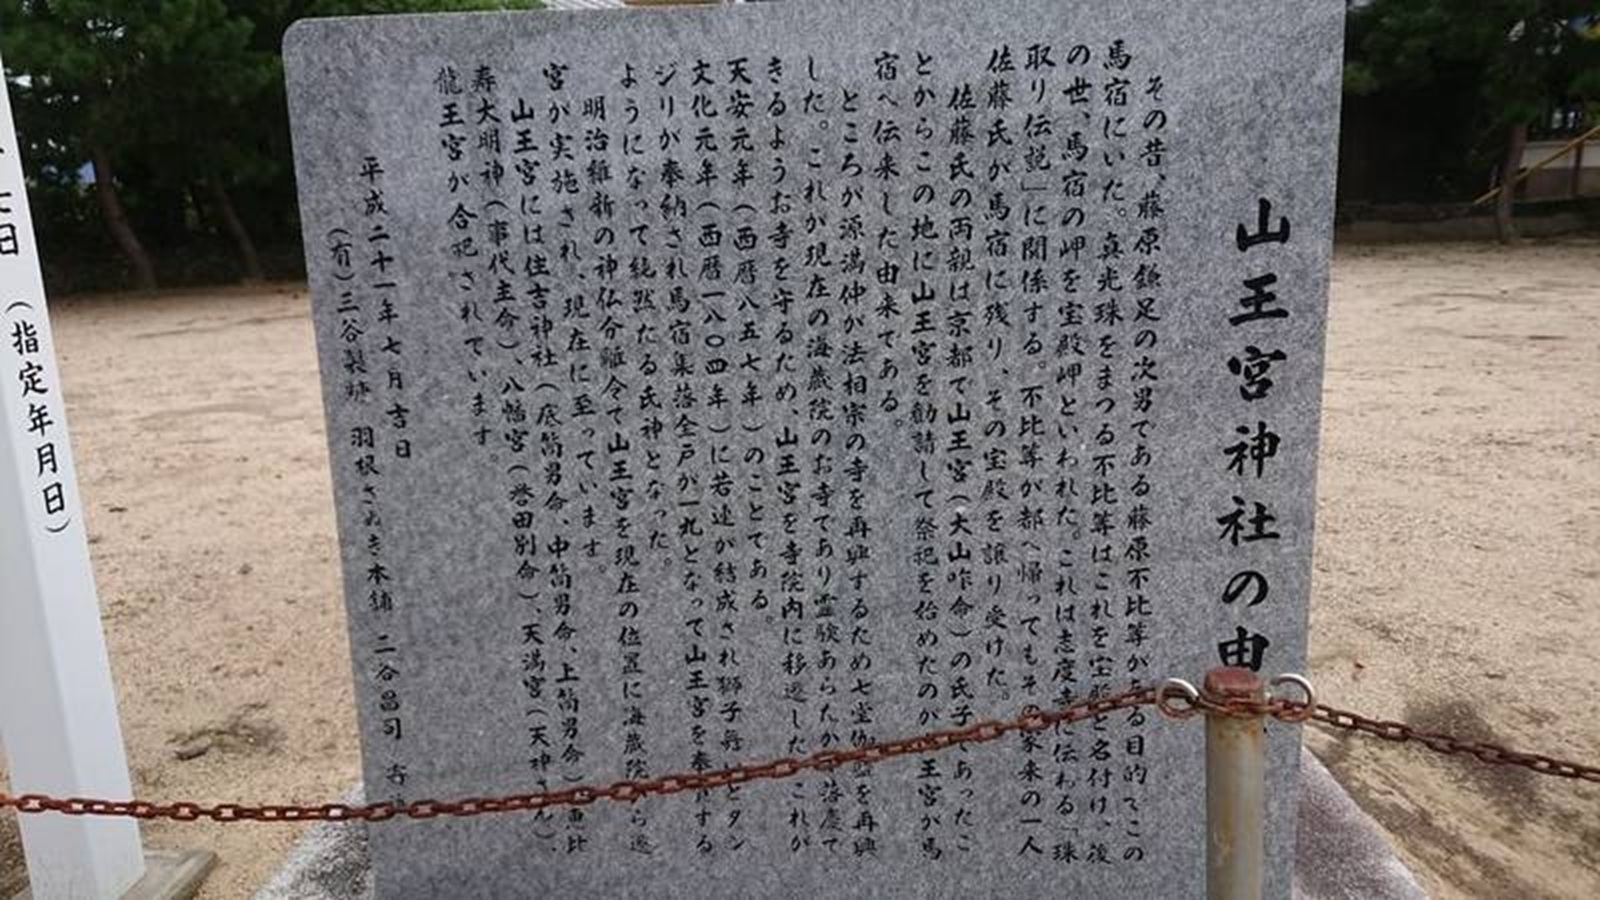 山王宮神社の由
その昔、藤原鎌足の次男である藤原不比等がある目的でこの
馬宿にいた。真光珠をまつる不比等はこれを宝殿と名付け、後
の世、馬宿の岬を宝殿岬といわれた。これは志度寺に伝わる「珠
取り伝説」に関係する。不比等が都へ帰ってもその家来の一人
佐藤氏が馬宿に残り、その宝殿を譲り受けた。
佐藤氏の両親は京都で山王宮(大山咋命)の氏子であったこ
とからこの地に山王宮を勧請して祭祀を始めたのが山王宮が馬
宿へ伝来した由来である。
ところが源満仲が法相宗の寺を再興するため七堂伽藍を再興
した。これが現在の海蔵院のお寺であり霊験あらたか 落慶で
きるようお寺を守るため、山王宮を寺院内に移遷した。これが
天安元年(西暦八五七年)のことである。
文化元年(西暦一八〇四年)に若連が結成され獅子舞 とダン
ジリが奉納され馬宿集落全戸が一丸となって山王宮を奉 する
ようになって純然たる氏神となった。
明治維新の神仏分離令で山王宮を現在の位置に海蔵院から遷
宮が実施され、現在に至っています。
山王宮には住吉神社(底筒男命、中筒男命、上筒男命)恵比
寿大明神(事代主命)、八幡宮(誉田別命)、天満宮(天神さん)、
龍王宮が合祀されています。
平成二十一年七月吉日
(有)三谷製糖 羽根さぬき本舗 三谷昌司
日 (指定年月日)